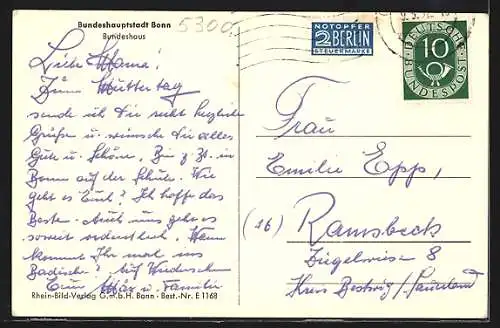 Bundeshauptstadt Bonn
Bundeshaus
5300
NOTOPFER
2 BERLIN
STEUERMARKE
DEUTSCHE BUNDESPOST
10
Liebe Mama!
Zum Muttertag
sende ich Dir recht herzliche
Grüße u. wünsche Dir alles
Gute u. Schöne. Bin z. Zt. in
Bonn auf der Schule. Wie
geht es Euch? Ich hoffe das
Beste. Auch uns geht es
soweit ordentlich. Wann
kommt Ihr mal ins
Badische? Auf Wiedersehen
Euer Max u. Familie
Rhein-Bild-Verlag G.m.b.H. Bonn - Best.-Nr. E 1168
Frau
Emilie Epp,
(16) Ramsbeck
Ziegelwiese 8
Kreis Bestwig/Sauerland